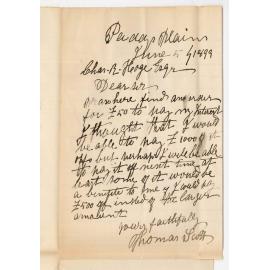 Paddys Plain
June 5/1899
Chas. R. Hogg Esqr
Dear Sir
find
for £50 to pay my Interest
I thought that I would
be able to pay £1000 of it
off but perhaps I will be able
to pay it off next time at
least some of it would be
a benefit to me if I could pay
£500 of instead of the larger
amount
yours faithfully
Thomas Scott